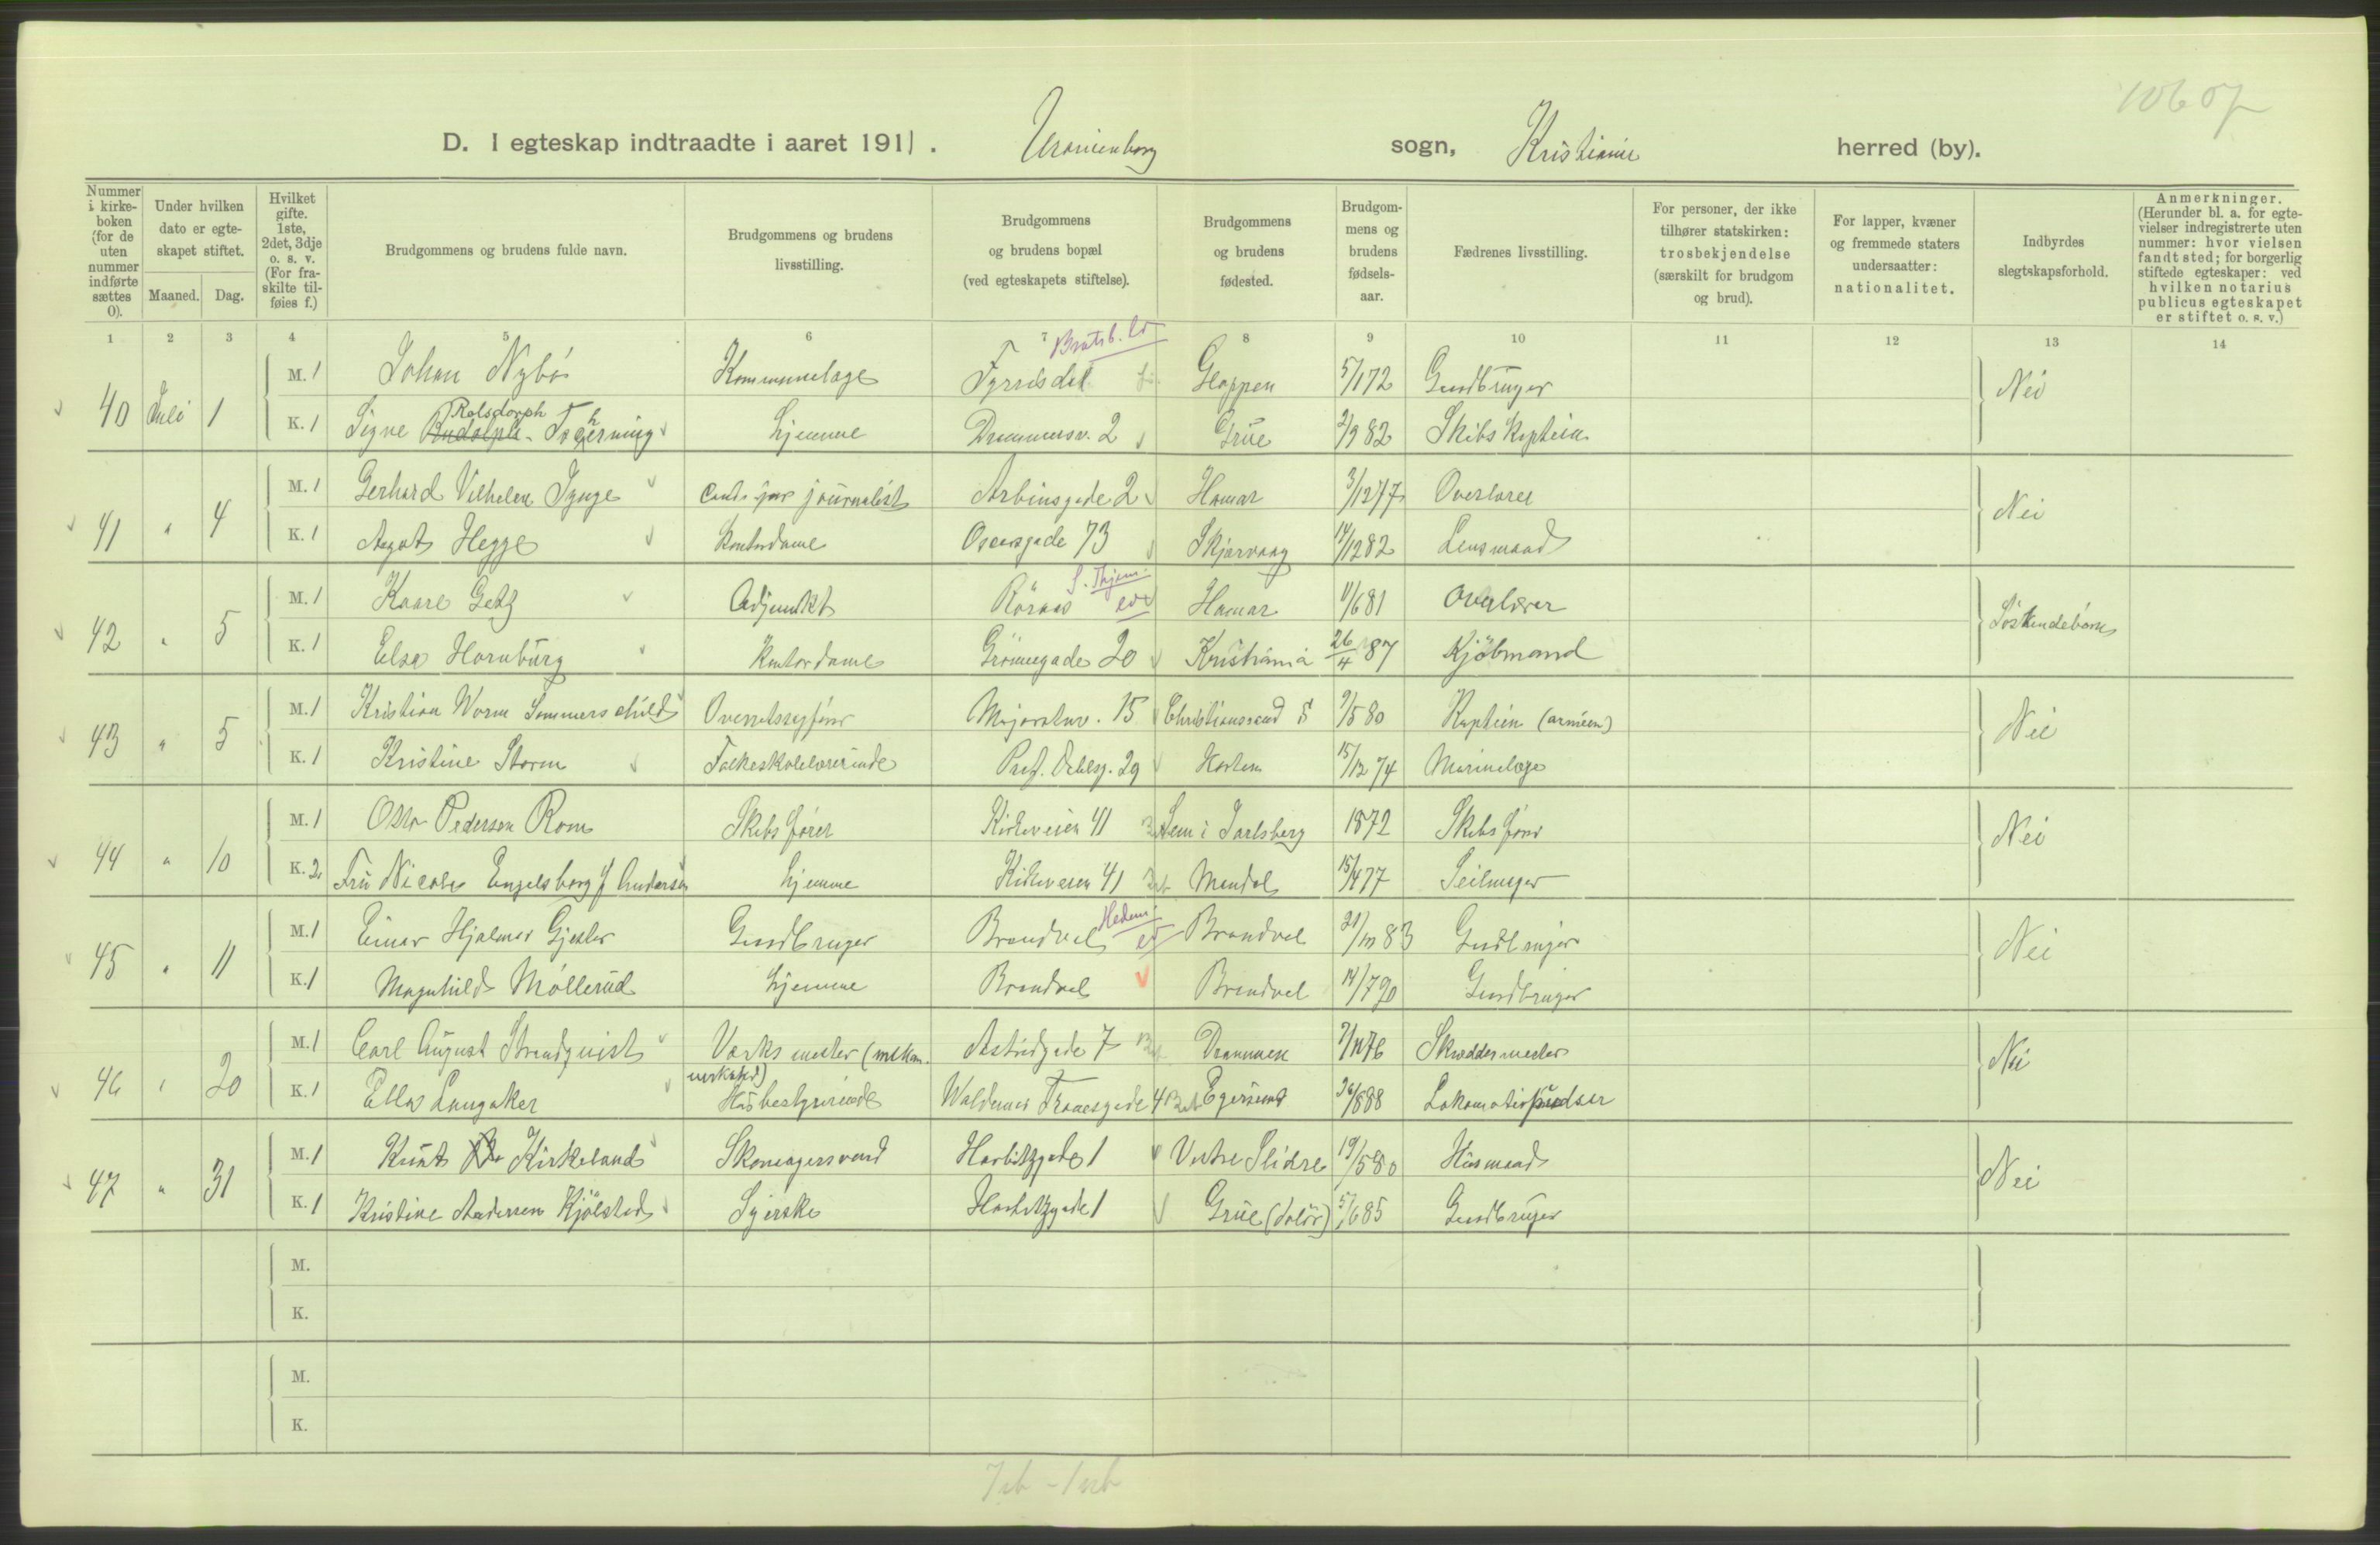 10607
D. I egteskap indtraadte i aaret 1911. Uranienborg sogn, Kristiania herred (by).
Nummer i kirkeboken (for de uten nummer indførte sættes 0).
Under hvilken dato er egteskapet stiftet.
Maaned. Dag.
Hvilket gifte. 1ste, 2det, 3dje o. s. v. (For fraskilte tilføies f.)
Brudgommens og brudens fulde navn.
Brudgommens og brudens livsstilling.
Brudgommens og brudens bopæl (ved egteskapets stiftelse).
Brudgommens og brudens fødested.
Brudgommens og brudens fødselsaar.
Fædrenes livsstilling.
For personer, der ikke tilhører statskirken: trosbekjendelse (særskilt for brudgom og brud).
For lapper, kvæner og fremmede staters undersaatter: nationalitet.
Indbyrdes slegtskapsforhold.
Anmerkninger. (Herunder bl. a. for egtevielser indregistrerte uten nummer: hvor vielsen fandt sted; for borgerlig stiftede egteskaper: ved hvilken notarius publicus egteskapet er stiftet o. s. v.)
1 2 3 4 5 6 7 8 9 10 11 12 13 14
Bratsb.
40 Juli 1 M. 1 Johan Nybø Kommunelæge Fyrisdal Gloppen 5/1 72 Gardbruger Nei
K. 1 Signe Rolsdorph Tscherning hjemme Drammensv. 2 Grue 2/9 82 Skibskaptein
41 " 4 M. 1 Gerhard Vilhelm Jynge cand. jur. journalist Arbinsgade 2 Hamar 3/12 77 Overlærer Nei
K. 1 Agot Hegge Kontordame Oscarsgade 73 Skjervaag 14/12 82 Lensmand
S. Thjem.
42 " 5 M. 1 Kaare Getz Adjunkt Röraas Hamar 11/6 81 Overlærer Søskendebørn
K. 1 Elsa Hornburg Kontordame Grönnegade 20 Kristiania 26/4 87 Kjöbmand
43 " 5 M. 1 Kristian Worm Sommerschild Overretssagfører Majorstuv. 15 Christianssand S 9/5 80 Kaptein (armeen) Nei
K. 1 Kristine Storm Folkeskolelærerinde Prof. Dahlsg. 29 Horten 15/12 74 Marinelæge
44 " 10 M. 1 Pedersen Rom Skibsfører Kirkeveien 41 Sem i Jarlsberg 1872 Skibsfører Nei
K. 2 Fru Nicoline Engelsborg f Andersen hjemme Kirkeveien 41 Mandal 15/4 77 Seilmager
Hedem.
45 " 11 M. 1 Einar Hjalmar Gjesler Gardbruger Brandval Brandval 21/10 83 Gardbruger Nei
K. 1 Magnhild Møllerud hjemme Brandval Brandval 14/7 90 Gardbruger
46 " 20 M. 1 Carl August Strandquist Verksmester (mekan. verksted) Astridgade 7 Drammen 7/11 76 Skræddermester Nei
K. 1 Ella Langaker Husbestyrerinde Waldemar Thranesgade 4 Egersund 26/8 88 Lokomotivpudser
47 " 31 M. 1 Knut Kirkeland Skomagersvend Harbitzgade 1 Vestre Slidre 19/5 80 Husmand Nei
K. 1 Kristine Andersen Kjölstad Syerske Harbitzgade 1 Grue (Solör) 5/6 85 Gardbruger
M.
K.
M.
K.